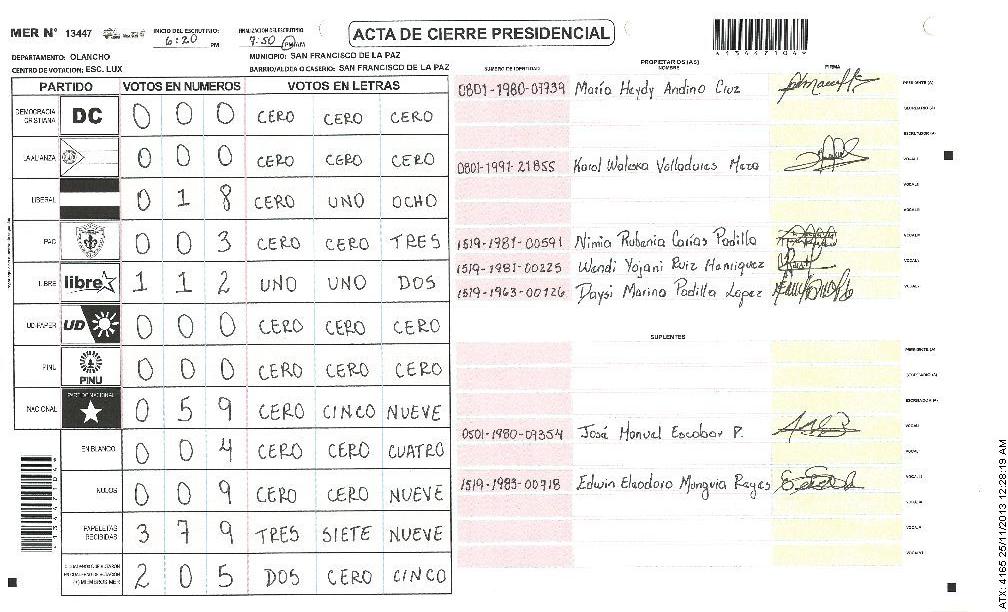 MER N° 13447
INICIO DEL ESCRUTINIO: 6:20 PM
FINALIZACION DEL ESCRUTINIO 7:50 PM/AM
ACTA DE CIERRE PRESIDENCIAL
DEPARTAMENTO: OLANCHO
MUNICIPIO: SAN FRANCISCO DE LA PAZ
CENTRO DE VOTACION: ESC. LUX
BARRIO/ALDEA O CASERIO: SAN FRANCISCO DE LA PAZ
PARTIDO VOTOS EN NUMEROS VOTOS EN LETRAS
DEMOCRACIA CRISTIANA DC 0 0 0 CERO CERO CERO
LA ALIANZA 0 0 0 CERO CERO CERO
LIBERAL 0 1 8 CERO UNO OCHO
PAC 0 0 3 CERO CERO TRES
LIBRE libre 1 1 2 UNO UNO DOS
UD-FAPER UD 0 0 0 CERO CERO CERO
PINU PINU 0 0 0 CERO CERO CERO
NACIONAL PARTIDO NACIONAL 0 5 9 CERO CINCO NUEVE
EN BLANCO 0 0 4 CERO CERO CUATRO
NULOS 0 0 9 CERO CERO NUEVE
PAPELETAS RECIBIDAS 3 7 9 TRES SIETE NUEVE
(+) MIEMBROS MER 2 0 5 DOS CERO CINCO
NUMERO DE IDENTIDAD
PROPIETARIOS (AS)
NOMBRE
FIRMA
0801-1980-07939 María Heydy Andino Cruz
PRESIDENTE (A)
SECRETARIO (A)
ESCRUTADOR (A)
0801-1991-21855 Karol Waleska Valladares Meza
1519-1981-00591 Nimia Rubenia Carías Padilla
1519-1981-00225 Wendi Yojani Ruiz Henriquez
1519-1963-00126 Daysi Marina Padilla Lopez
SUPLENTES
PRESIDENTE (A)
SECRETARIO (A)
ESCRUTADOR (A)
0501-1980-09354 José Manuel Escobar P.
1519-1983-00718 Edwin Eleodoro Munguia Reyes
ATX: 4165 25/11/2013 12:28:19 AM